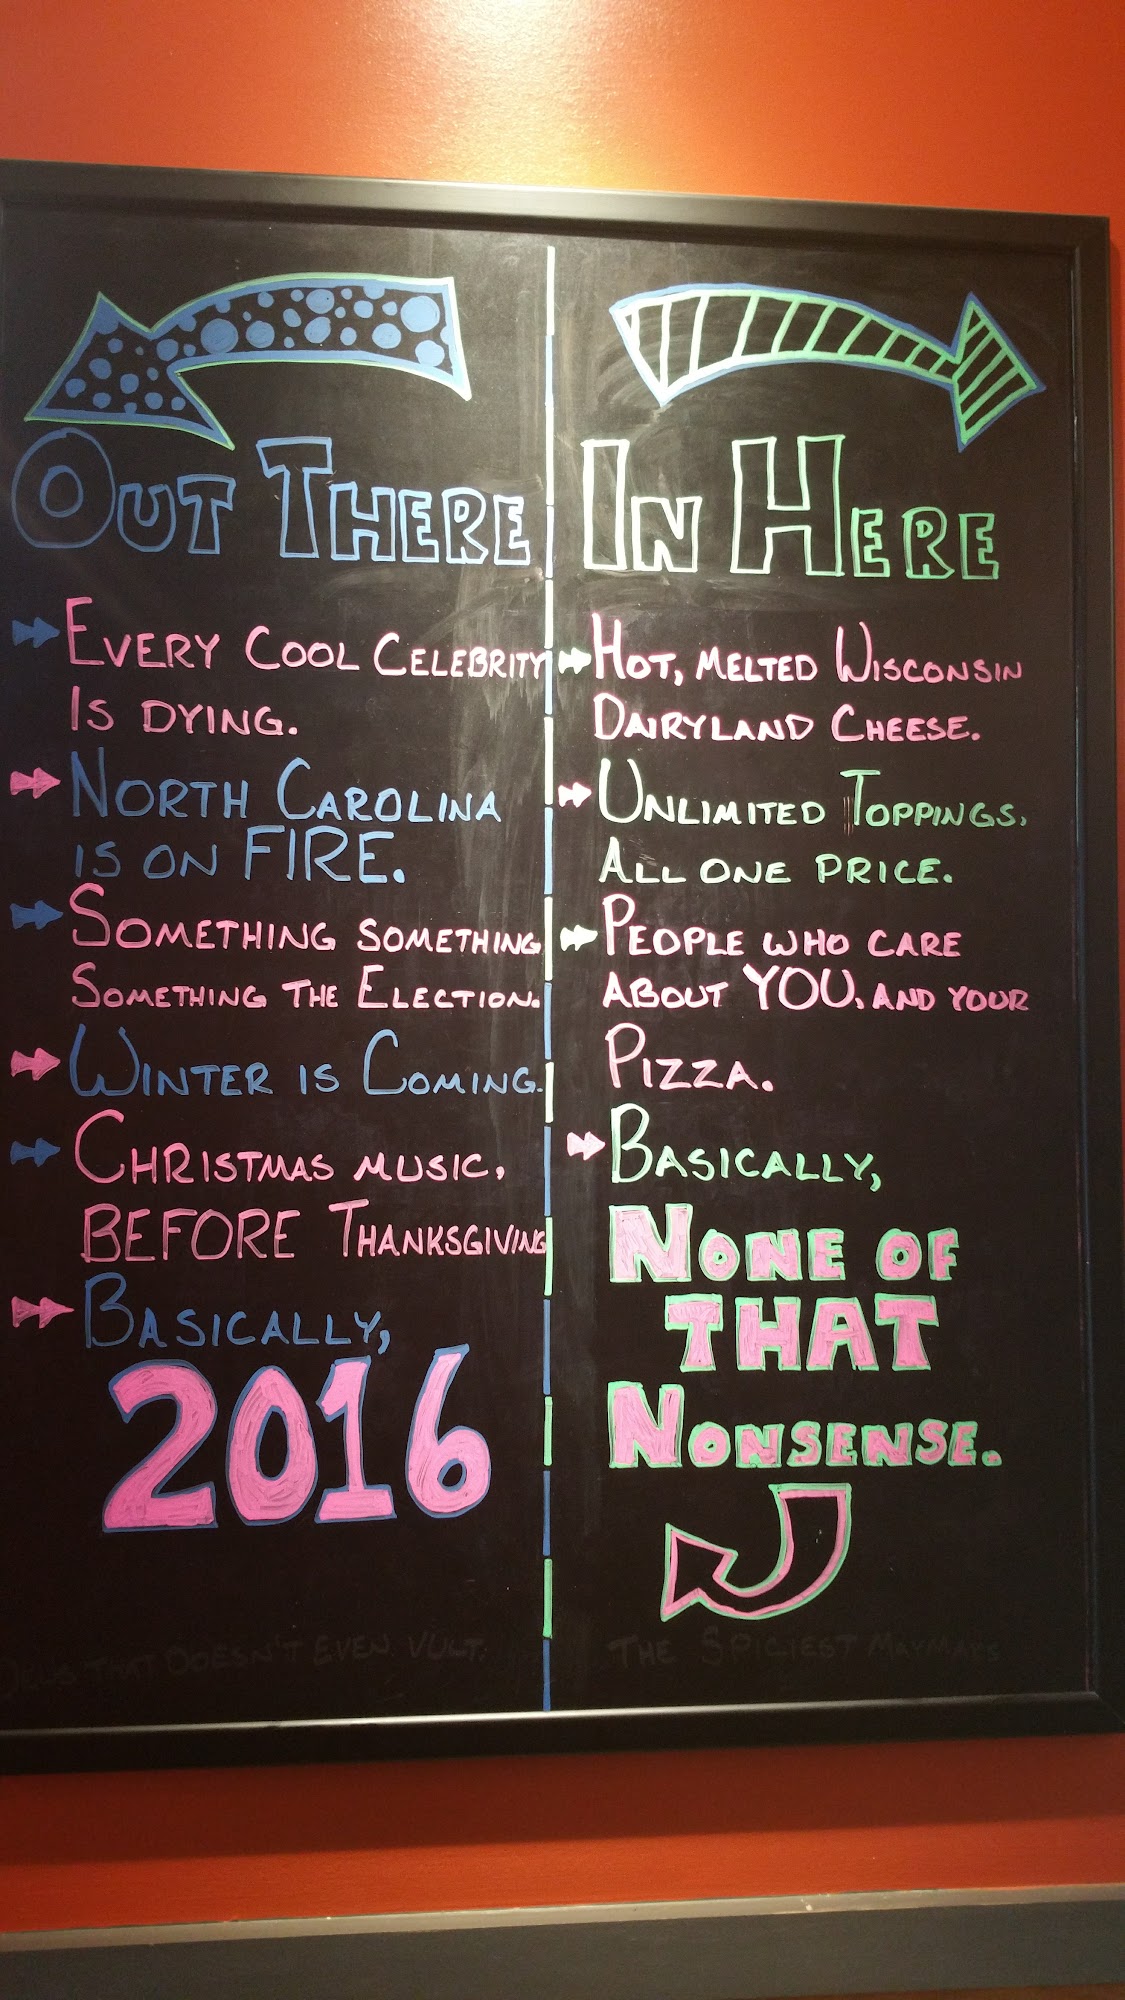 OUT THERE
EVERY COOL CELEBRITY
IS DYING.
NORTH CAROLINA
IS ON FIRE.
SOMETHING SOMETHING
SOMETHING THE ELECTION.
WINTER IS COMING.
CHRISTMAS MUSIC,
BEFORE THANKSGIVING
BASICALLY,
2016
THAT DOESN'T EVEN VULT.
IN HERE
HOT, MELTED WISCONSIN
DAIRYLAND CHEESE.
UNLIMITED TOPPINGS,
ALL ONE PRICE.
PEOPLE WHO CARE
ABOUT YOU, AND YOUR
PIZZA.
BASICALLY,
NONE OF
THAT
NONSENSE.
THE SPICIEST MAYMAYS